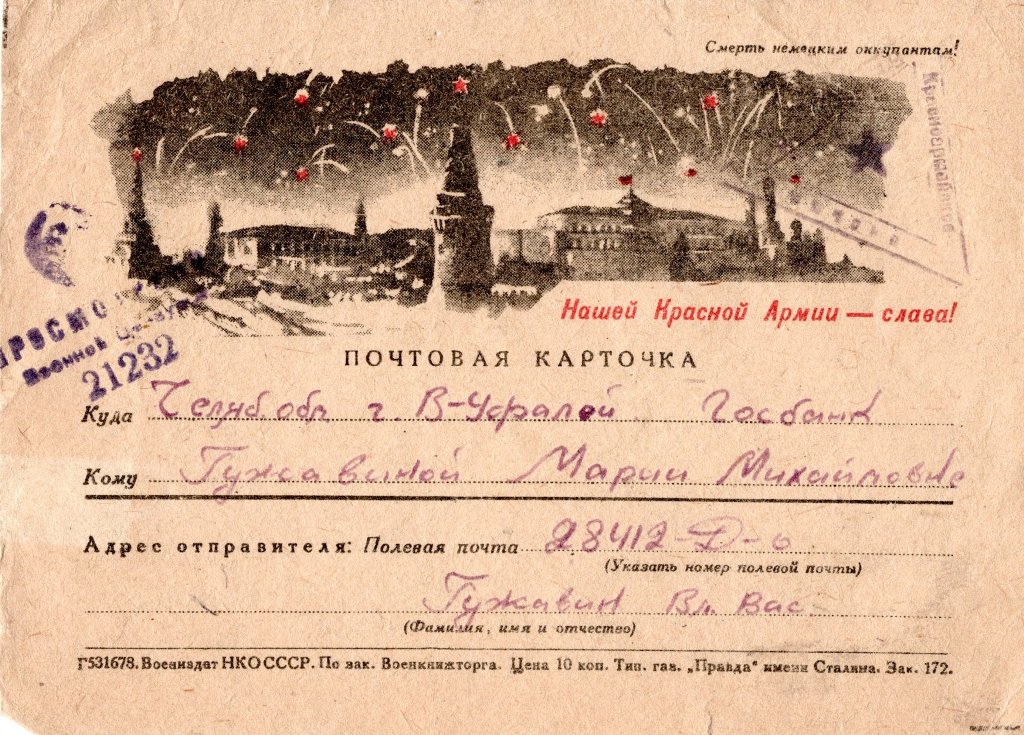 Смерть немецким оккупантам!
Красноармейское
Нашей Красной Армии — слава!
ПОЧТОВАЯ КАРТОЧКА
ПРОСМО
Военной
21232
Куда Челяб обл г. В-Уфалей Госбанк
Кому Гужавиной Марии Михайловне
Адрес отправителя: Полевая почта 28412-Д-о
(Указать номер полевой почты)
Гужавин Вл. Вас.
(Фамилия, имя и отчество)
Г531678. Воениздат НКО СССР. По зак. Военкнижторга. Цена 10 коп. Тип. газ. „Правда" имени Сталина. Зак. 172.